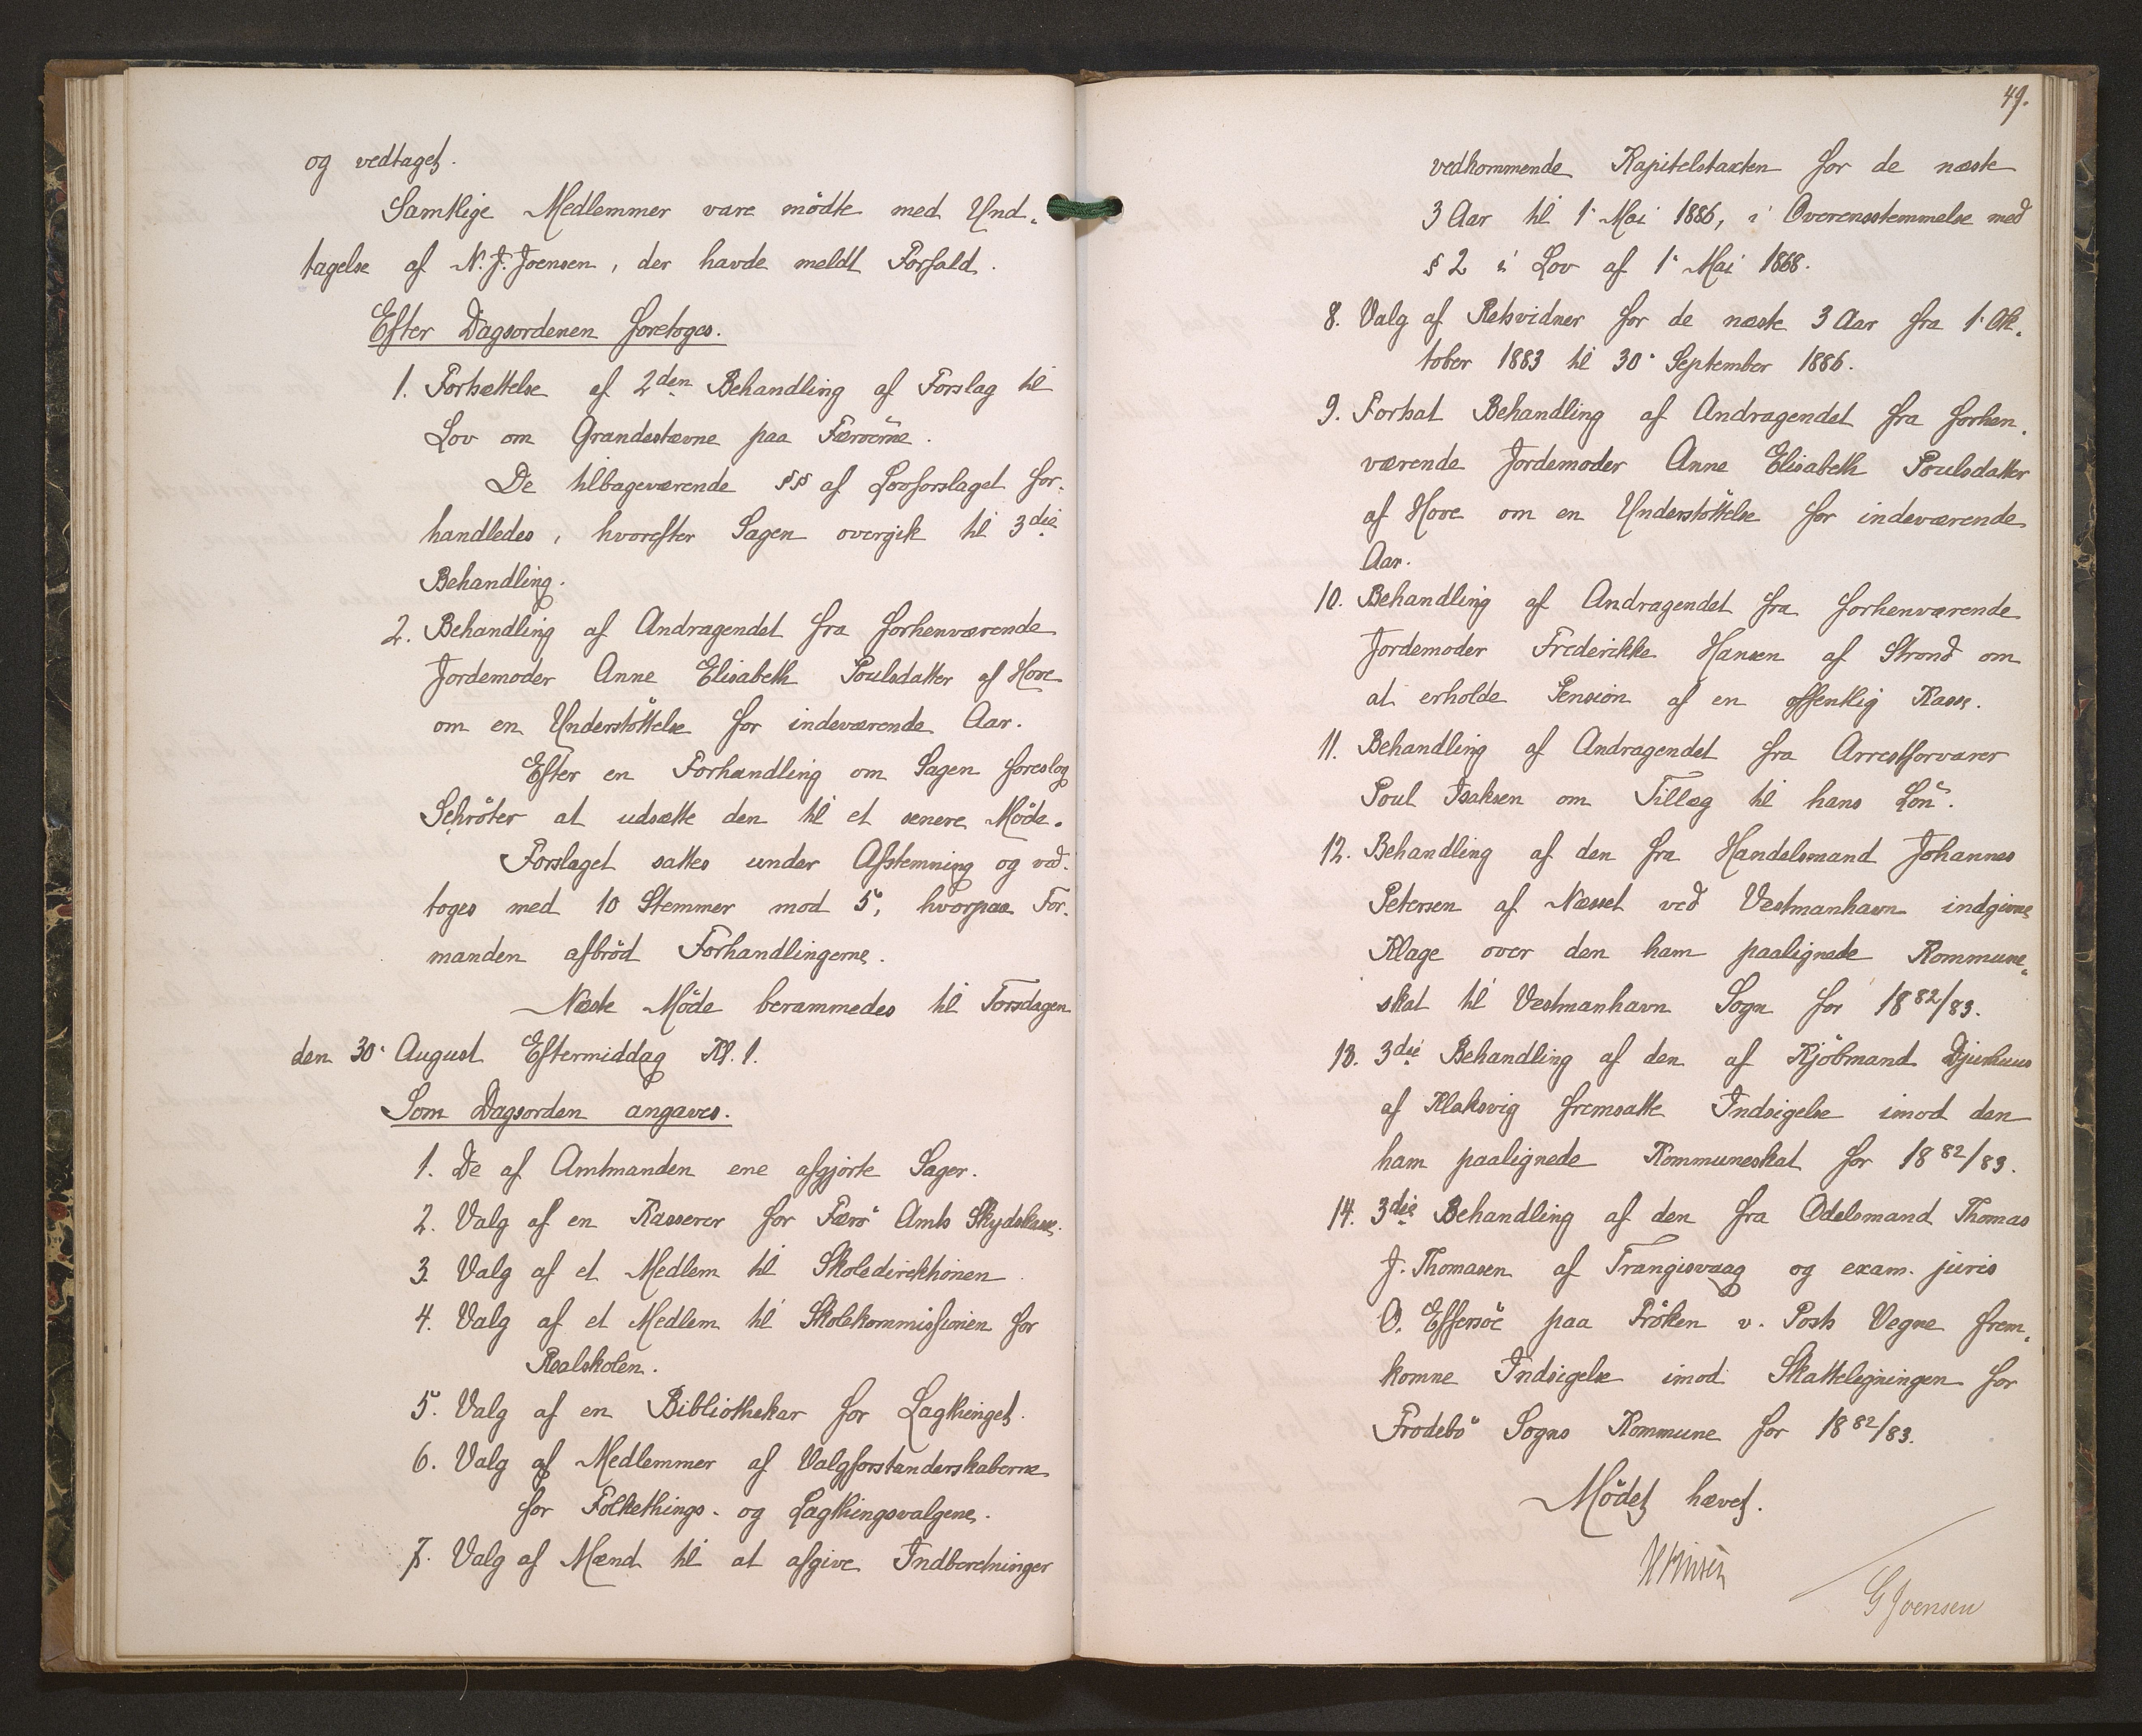 og vedtaget.
Samtlige Medlemmer vare mödte med Und-
tagelse af N. J. Joensen, der havde meldt Forfald.
Efter Dagsordenen foretoges.
1. Fortsættelse af 2den Behandling af Forslag til
Lov om Grandestævne paa Færøerne.
De tilbageværende §§ af Lovforslaget for-
handledes, hvorefter Sagen overgik til 3die
Behandling.
2. Behandling af Andragendet fra forhenværende
Jordemoder Anne Elisabeth Poulsdatter af Hove
om en Understöttelse for indeværende Aar.
Efter en Forhandling om Sagen foreslog
Schröter at udsætte den til et senere Möde.
Forslaget sattes under Afstemning og ved-
toges med 10 Stemmer mod 5, hvorpaa For-
manden afbröd Forhandlingerne.
Næste Möde berammedes til Torsdagen
den 30. August Eftermiddag Kl. 1.
Som Dagsorden angaves.
1. De af Amtmanden ene afgjorte Sager.
2. Valg af en Kasserer for Færö Amts Skydskasse.
3. Valg af et Medlem til Skoledirektionen
4. Valg af et Medlem til Skolekommissionen for
Realskolen.
5. Valg af en Bibliothekar for Lagthinget.
6. Valg af Medlemmer af Valgforstanderskaberne
for Folkethings- og Lagthingsvalgene.
7. Valg af Mænd til at afgive Indberetninger
49.
vedkommende Kapitelstaxten for de næste
3 Aar til 1. Mai 1886, i Overensstemmelse med
§ 2 i Lov af 1. Mai 1868.
8. Valg af Retsvidner for de næste 3 Aar fra 1. Ok-
tober 1883 til 30. September 1886.
9. Fortsat Behandling af Andragendet fra forhen-
værende Jordemoder Anne Elisabeth Poulsdatter
af Hove om en Understöttelse for indeværende
Aar.
10. Behandling af Andragendet fra forhenværende
Jordemoder Frederikke Hansen af Strond om
at erholde Pension af en offentlig Kasse.
11. Behandling af Andragendet fra Arrestforvarer
Poul Isaksen om Tillæg til hans Lön.
12. Behandling af den fra Handelsmand Johannes
Petersen af Næsset ved Vestmanhavn indgivne
Klage over den ham paalignede Kommune-
skat til Vestmanhavn Sogn for 1882/83.
13. 3die Behandling af den af Kjöbmand Djurhuus
af Klaksvig fremsatte Indsigelse imod den
ham paalignede Kommuneskat for 1882/83.
14. 3die Behandling af den fra Odelsmand Thomas
J. Thomasen af Trangisvaag og exam. juris
O. Effersöe paa Fröken v. Posts Vegne frem-
komne Indsigelse imod Skatteligningen for
Frodebö Sogns Kommune for 1882/83.
Mödet hævet.
G Joensen